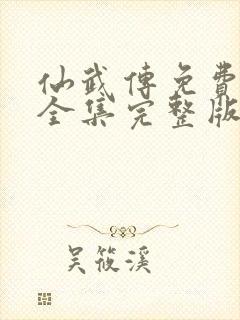 仙武傳免費
全集完整版
吴筱溪